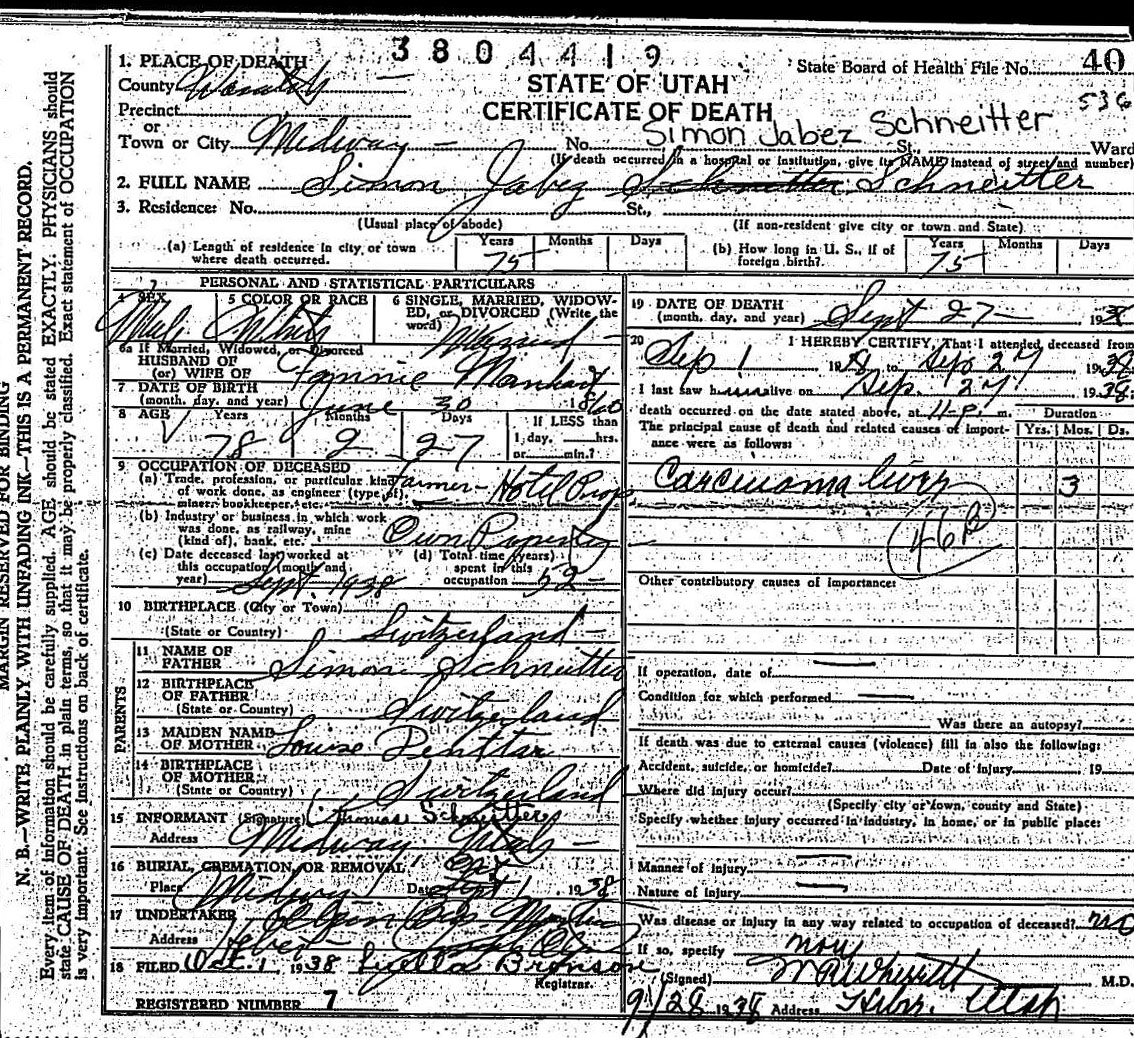 3804419
1. PLACE OF DEATH
County Wasatch
STATE OF UTAH
CERTIFICATE OF DEATH
State Board of Health File No. 40
536
Precinct
or
Town or City Midway No. Simon Jabez Schneitter St., Ward
(If death occurred in a hospital or institution, give its NAME instead of street and number)
2. FULL NAME Simon Jabez Schneitter
3. Residence: No. St.,
(Usual place of abode) (If non-resident give city or town and State)
(a) Length of residence in city or town where death occurred. Years 75 Months Days
(b) How long in U. S., if of foreign birth? Years 75 Months Days
PERSONAL AND STATISTICAL PARTICULARS
4 SEX Male
5 COLOR OR RACE White
6 SINGLE, MARRIED, WIDOWED, or DIVORCED (Write the word) Married
6a If Married, Widowed, or Divorced
HUSBAND OF
(or) WIFE OF Fannie
7 DATE OF BIRTH
(month, day, and year) June 30 1860
8 AGE Years 78 Months 2 Days 27 If LESS than 1 day, hrs. or min.?
9 OCCUPATION OF DECEASED
(a) Trade, profession, or particular kind of work done, as engineer (type of), miner, bookkeeper, etc. Farmer - Hotel Prop.
(b) Industry or business in which work was done, as railway, mine (kind of), bank, etc. Own Property
(c) Date deceased last worked at this occupation (month and year) Sept. 1938
(d) Total time (years) spent in this occupation 52
10 BIRTHPLACE (City or Town)
(State or Country) Switzerland
PARENTS
11 NAME OF FATHER Simon Schneitter
12 BIRTHPLACE OF FATHER
(State or Country) Switzerland
13 MAIDEN NAME OF MOTHER Louise
14 BIRTHPLACE OF MOTHER
(State or Country) Switzerland
15 INFORMANT (Signature) Thomas Schneitter
Address Midway, Utah
16 BURIAL, CREMATION, OR REMOVAL
Place Midway Date 1 1938
17 UNDERTAKER Olpin Bros
Address Heber
18 FILED Oct. 1 1938 Luella Bronson
Registrar.
REGISTERED NUMBER 7
19 DATE OF DEATH
(month, day, and year) Sept 27 1938
20 I HEREBY CERTIFY, That I attended deceased from
Sep 1 1938 to Sep 27 1938
I last saw h alive on Sep. 27 1938
death occurred on the date stated above, at 4 P. m.
The principal cause of death and related causes of importance were as follows:
Duration
Yrs. Mos. Ds.
Carcinoma liver 3
46
Other contributory causes of importance:
If operation, date of
Condition for which performed
Was there an autopsy?
If death was due to external causes (violence) fill in also the following:
Accident, suicide, or homicide? Date of injury 19
Where did injury occur?
(Specify city or town, county and State)
Specify whether injury occurred in industry, in home, or in public place:
Manner of injury
Nature of injury
Was disease or injury in any way related to occupation of deceased? no
If so, specify
(Signed) M.D.
9/28 1938 Address Heber, Utah
MARGIN RESERVED FOR BINDING
N. B.—WRITE PLAINLY WITH UNFADING INK—THIS IS A PERMANENT RECORD.
Every item of information should be carefully supplied. AGE should be stated EXACTLY. PHYSICIANS should
state CAUSE OF DEATH in plain terms, so that it may be properly classified. Exact statement of OCCUPATION
is very important. See instructions on back of certificate.